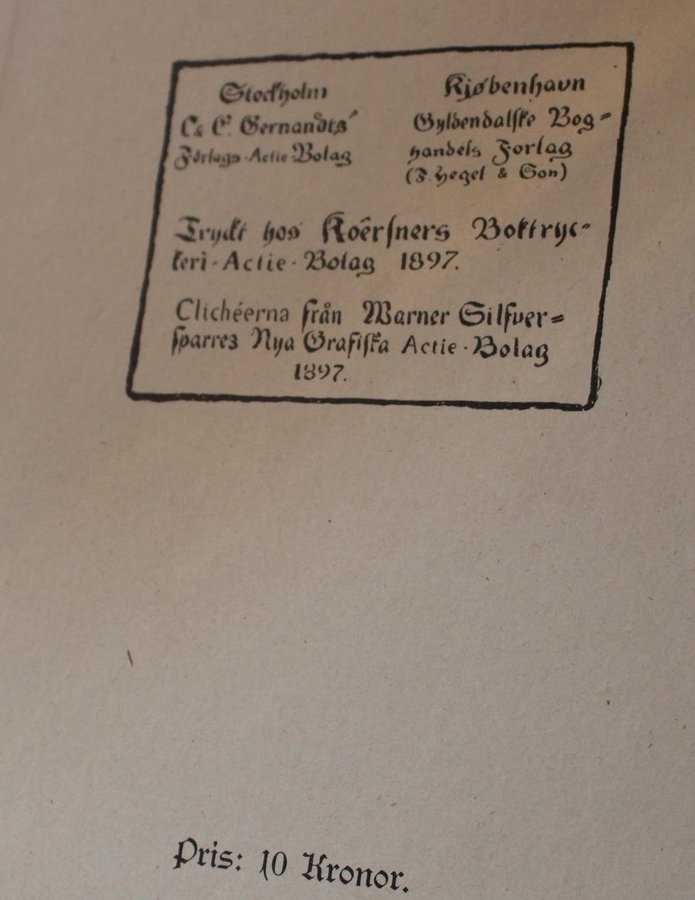 Stockholm
C. E. Gernandts'
Förlags-Actie-Bolag
Kjøbenhavn
Gyldendalske Bog-
handels Forlag
(F. Hegel & Son)
Tryckt hos Koêrsners Boktryc-
keri-Actie-Bolag 1897.
Clichéerna från Warner Silfver-
sparres Nya Grafiska Actie-Bolag
1897.
Pris: 10 Kronor.